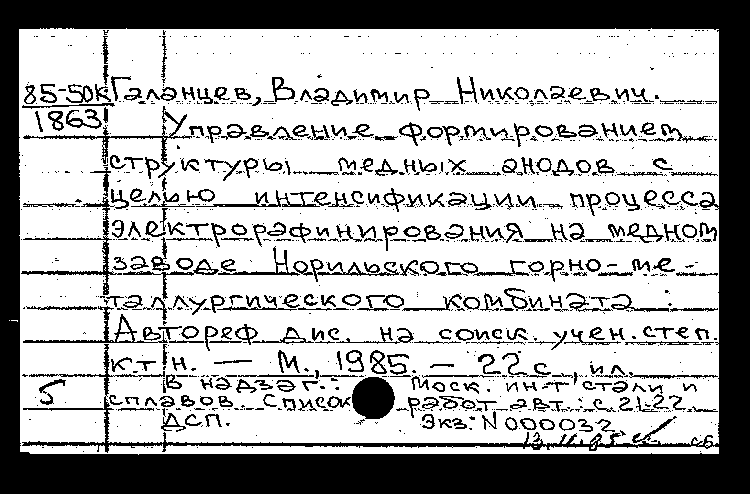 85-50к Галанцев, Владимир Николаевич.
1863 Управление формированием
структуры медных анодов с
целью интенсификации процесса
электрорафинирования на медном
заводе Норильского горно-ме-
таллургического комбината :
Автореф. дис. на соиск. учен. степ.
к.т.н. — М., 1985. — 22 с., ил.
В надзаг.: Моск. ин-т стали и
5 сплавов. Список работ авт.: с. 21-22.
ДСП. Экз: N 000032.
сб